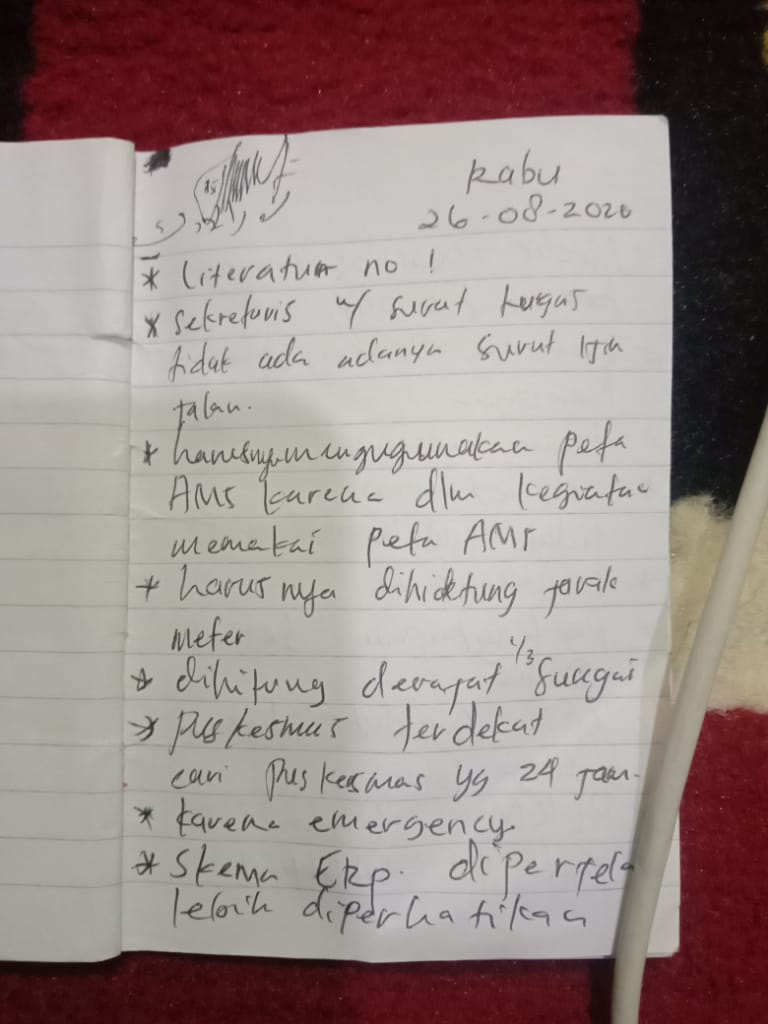 Rabu
26-08-2020
* Literatur no !
* sekretaris u/ surat tugas
tidak ada adanya surat ijin
jalan.
* harusnya menggugunakan peta
AMS karena dlm kegiatan
memakai peta AMS
* harus nya dihidtung jarak
meter
* dihitung derajat 1/3 sungai
* puskesmas terdekat
cari puskesmas yg 24 jam.
* karena emergency.
* Skema ERP. diperjela
lebih diperhatikan